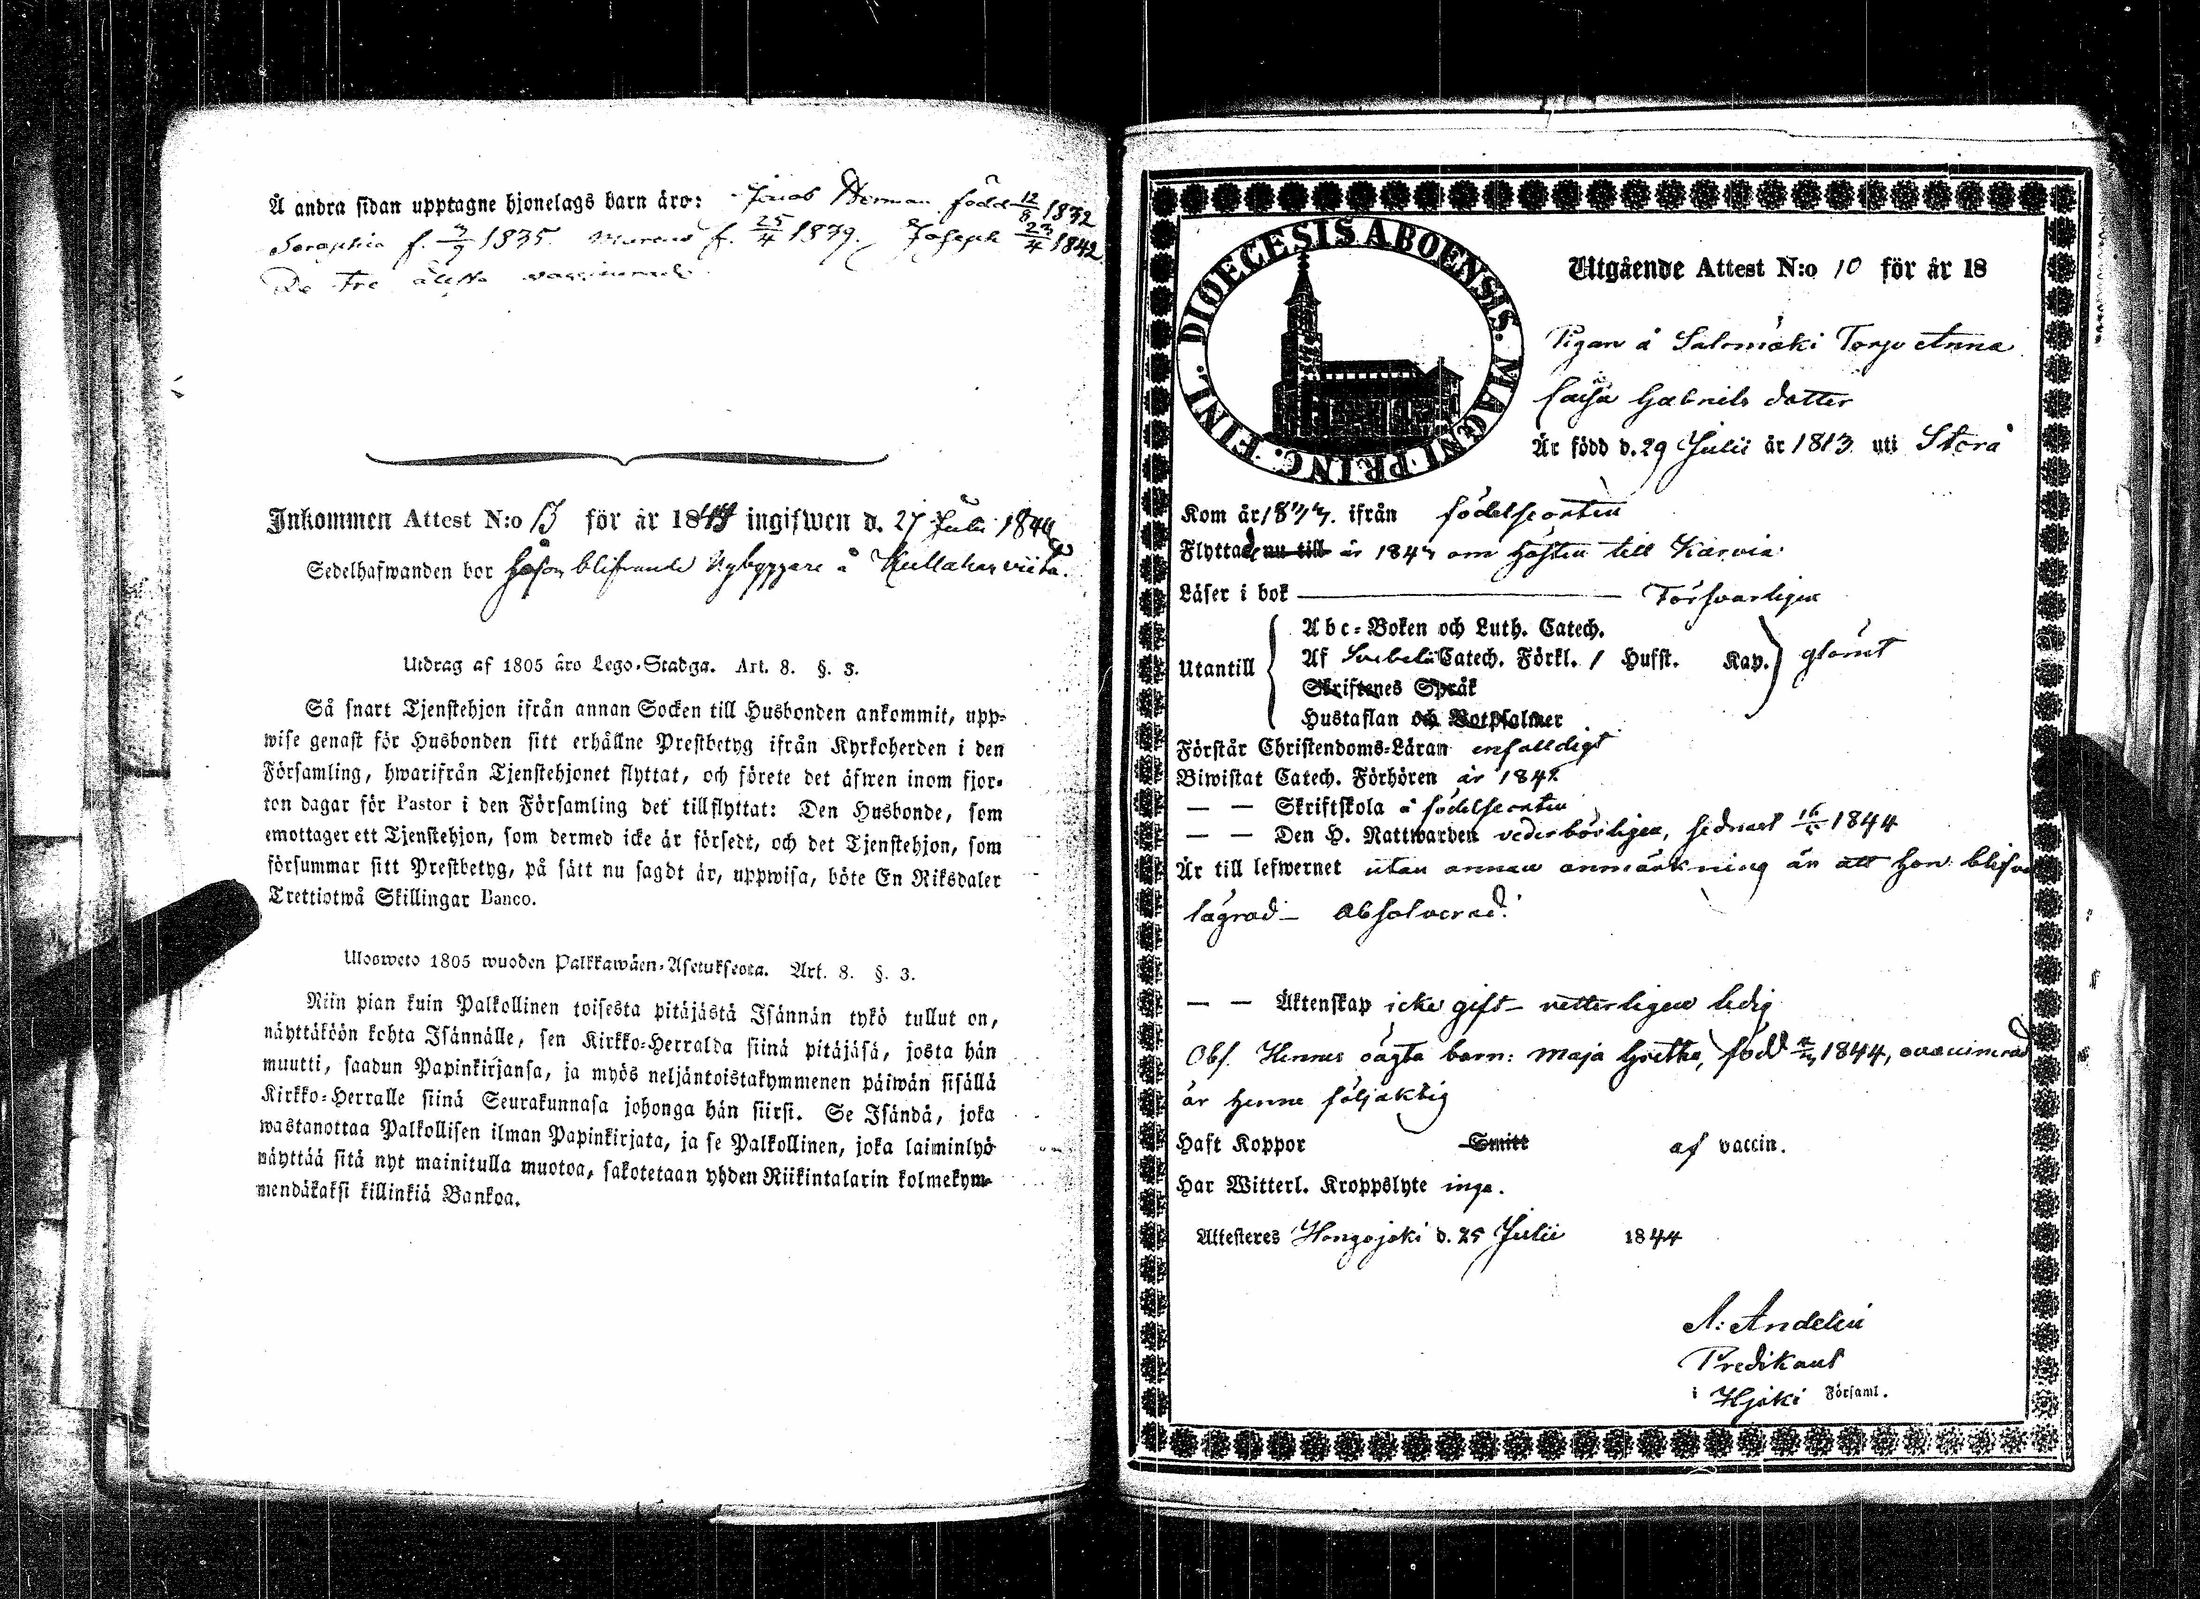 Å andra sidan upptagne hjonelags barn äro: Jacob Herman född 12/8 1832
Seraphia f. 3/9 1835. f. 25/4 1839. Joseph 23/4 1842
De tre äldsta vaccinerade.
Inkommen Attest N:o 13 för år 1844 ingifwen d. 27 Juli 1844
Sedelhafwanden bor hos blifvande Nybyggare å
Utdrag af 1805 års Lego-Stadga. Art. 8. §. 3.
Så snart Tjenstehjon ifrån annan Socken till Husbonden ankommit, upp-
wise genast för Husbonden sitt erhållne Prestbetyg ifrån Kyrkoherden i den
Församling, hwarifrån Tjenstehjonet flyttat, och förete det äfwen inom fjor-
ton dagar för Pastor i den Församling det tillflyttat: Den Husbonde, som
emottager ett Tjenstehjon, som dermed icke är försedt, och det Tjenstehjon, som
försummar sitt Prestbetyg, på sätt nu sagdt är, uppwisa, böte En Riksdaler
Trettiotwå Skillingar Banco.
Ulosweto 1805 wuoden Palkkawäen-Asetuksesta. Art. 8. §. 3.
Niin pian kuin Palkollinen toisesta pitäjästä Isännän tykö tullut on,
näyttäköön kohta Isännälle, sen Kirkko-Herralda siinä pitäjäsä, josta hän
muutti, saadun Papinkirjansa, ja myös neljäntoistakymmenen päiwän sisällä
Kirkko-Herralle siinä Seurakunnasa johonga hän siirsi. Se Isändä, joka
wastanottaa Palkollisen ilman Papinkirjata, ja se Palkollinen, joka laiminlyö
näyttää sitä nyt mainitulla muotoa, sakotetaan yhden Riikintalarin kolmekym-
mendäkaksi killinkiä Bankoa.
DIOECESIS ABOENSIS. MAGNI PRINC. FINL.
Utgående Attest N:o 10 för år 18
Pigan å Salomäki Torp Anna
Caisa Gabriels dotter
Är född d. 29 Julii år 1813. uti Storå
Kom år ifrån födelseorten
Flyttade nu till år 1843 om hösten till Karvia.
Läser i bok Försvarligen
Abc-Boken och Luth. Catech.
Utantill Af Svebelii Catech. Förkl. / Husst. Kap. glömt
Skriftenes Språk
Hustaflan och Botpsalmer
Förstår Christendoms-Läran enfaldigt
Biwistat Catech. Förhören år 1842
— — Skriftskola å födelseorten
— — Den H. Nattwarden vederbörligen, sednast 16/6 1844
Är till lefwernet utan annan anmärkning än att hon blifvit
lägrad – Absolverad.
— — Äktenskap icke gift – vetterligen ledig
Obs. Hennes oägta barn: Maja Gretha, född 1844, ovaccinerad
är henne följaktig
Haft Koppor Smitt af vaccin.
Har Witterl. Kroppslyte inga.
Attesteres Hongojoki d. 25 Julii 1844
A: Andelin
Predikant
i Hjoki Församl.